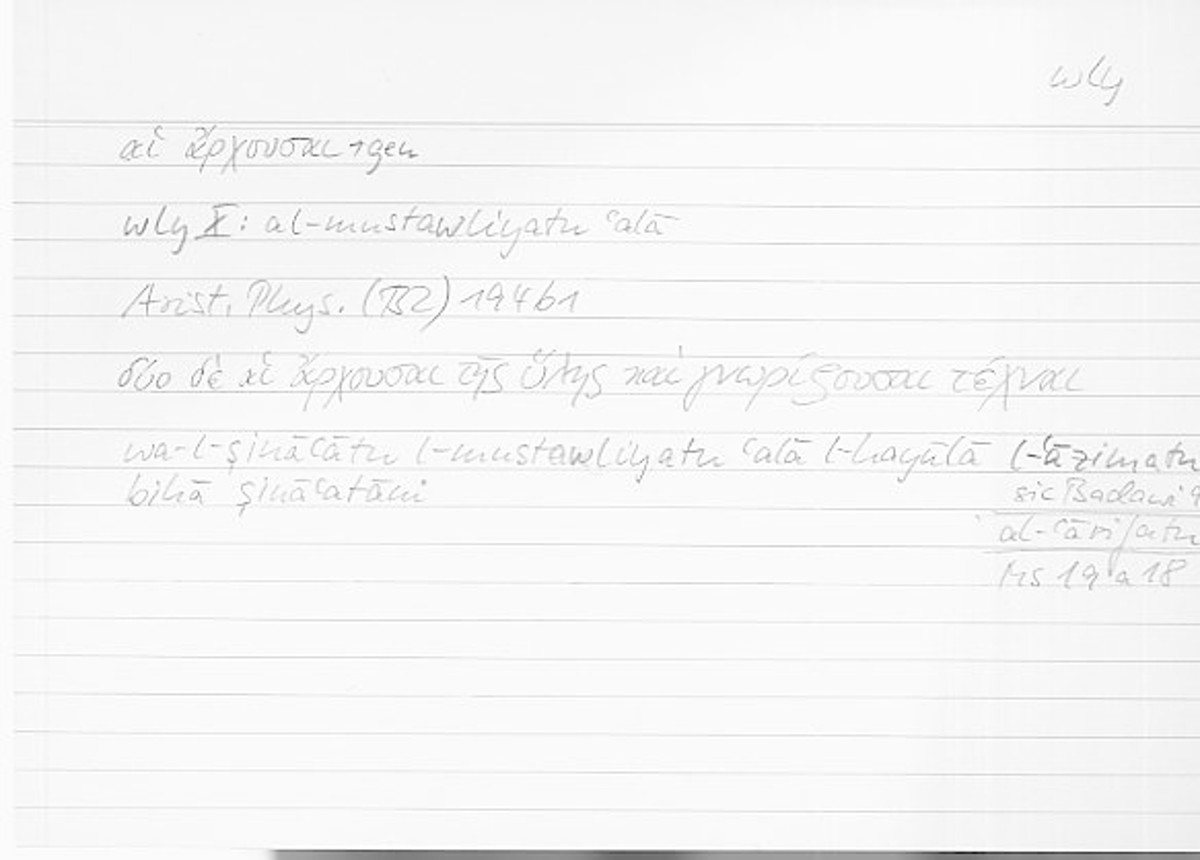 wly
αἱ ἄρχουσαι + gen
wly X: al-mustawliyatu ʿalā
Arist. Phys. (B2) 194b1
δύο δὲ αἱ ἄρχουσαι τῆς ὕλης καὶ γνωρίζουσαι τέχναι
wa-l-ṣināʿātu l-mustawliyatu ʿalā l-hayūlā l-ʿāzimatu
bihā ṣināʿatāni
sic Badawī
al-ʿārifatu
Ms 19 a 18